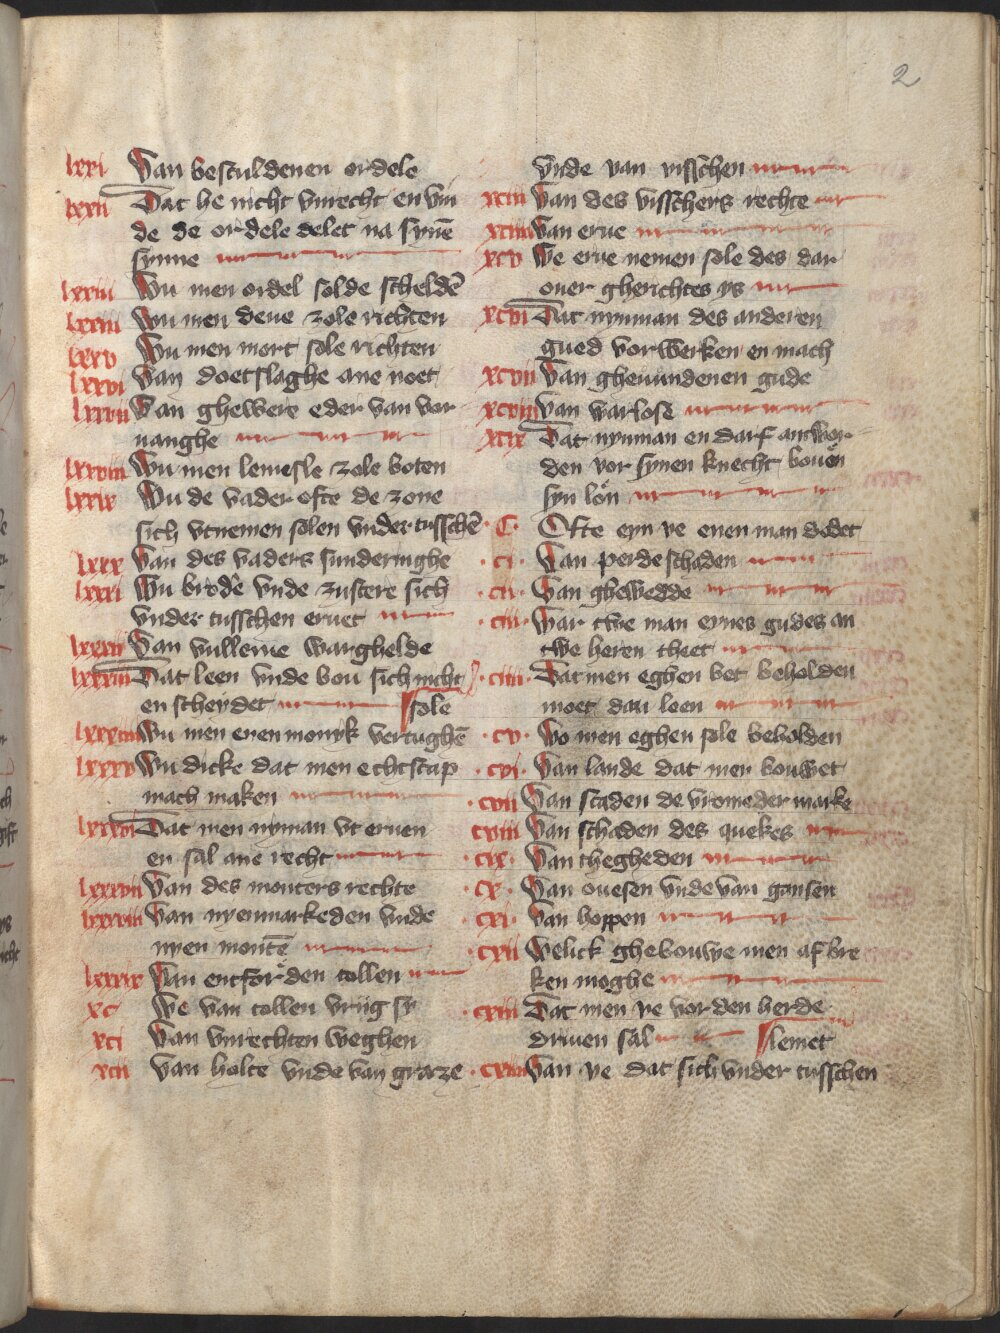 2
lxxi Van besculdenen ordele
lxxii Dat he nicht vnrecht en vin
de de ordele delet na synē
synne
lxxiii Wu men ordel solde scheldē
lxxiiii Wu men deue zole richten
lxxv Wu men mort sole richten
lxxvi Van doetslaghe ane noet
lxxvii Van ghewere eder van vor
uanghe
lxxviii Wu men lemesle zole boten
lxxix Wu de vader ofte de zone
sich vtnemen solen vnder tusschē
lxxx Van des vaders sunderinghe
lxxxi Wu brodē vnde zustere sich
vnder tusschen eruet
lxxxii Van vulleme warghelde
lxxxiii Dat leen vnde bou sich nicht
en scheydet sole
lxxxiiii Wu men enen monyk vertughē
lxxxv Wu dicke dat men echtscap
mach maken
lxxxvi Dat men nyman vt eruen
en sal ane recht
lxxxvii Van des monters rechte
lxxxviii Van nyenmarkeden vnde
nyen montē
lxxxix Van entforden tollen
xc We van tollen vriig sy
xci Van vnrechten weghen
xcii Van holte vnde van graze
vnde van visschen
xciii Van des visschers rechte
xciiii Van erue
xcv We erue nemen sole des dar
ouer gherichtes ys
xcvi Dat nynman des anderen
gued vorwerken en mach
xcvii Van gheuundenen gude
xcviii Van warlose
xcix Dat nynman en darf antwor
den vor synen knecht bouen
syn lon
C Ofte eyn ve enen man dodet
ci Van perde schaden
cii Van ghewedde
ciii War twe man eynes gudes an
twe heren theet
ciiii Dat men eghen bet beholden
moet dan leen
cv Wo men eghen sole beholden
cvi Van lande dat men bouwet
cvii Van scaden de vromeder marke
cviii Van schaden des quekes
cix Van thegheden
cx Van ouesen vnde van gansen
cxi Van hoppen
cxii Welick ghebouwe men af bre
ken moghe
cxiii Dat men ve vor den herde
driuen sal lemet
cxiiii Van ve dat sich vnder tusschen